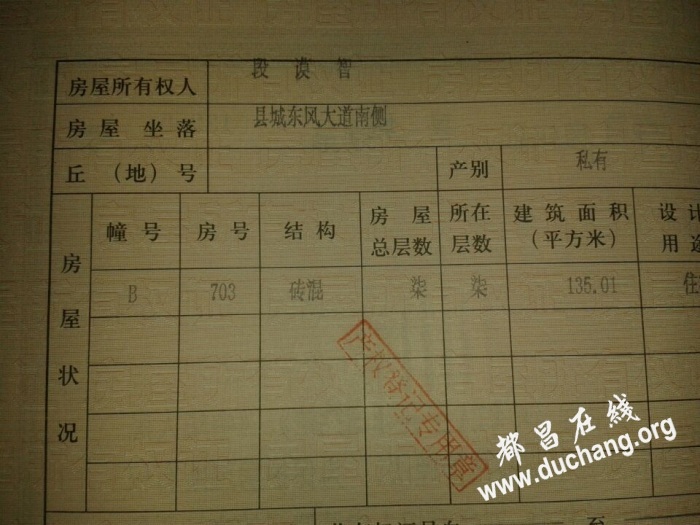 房屋所有权人 段漠智
房屋坐落 县城东风大道南侧
丘(地)号 产别 私有
房屋状况
幢号 房号 结构 房屋总层数 所在层数 建筑面积(平方米) 设计用途
B 703 砖混 柒 柒 135.01 住
产权登记专用章
都昌在线
www.duchang.org
至